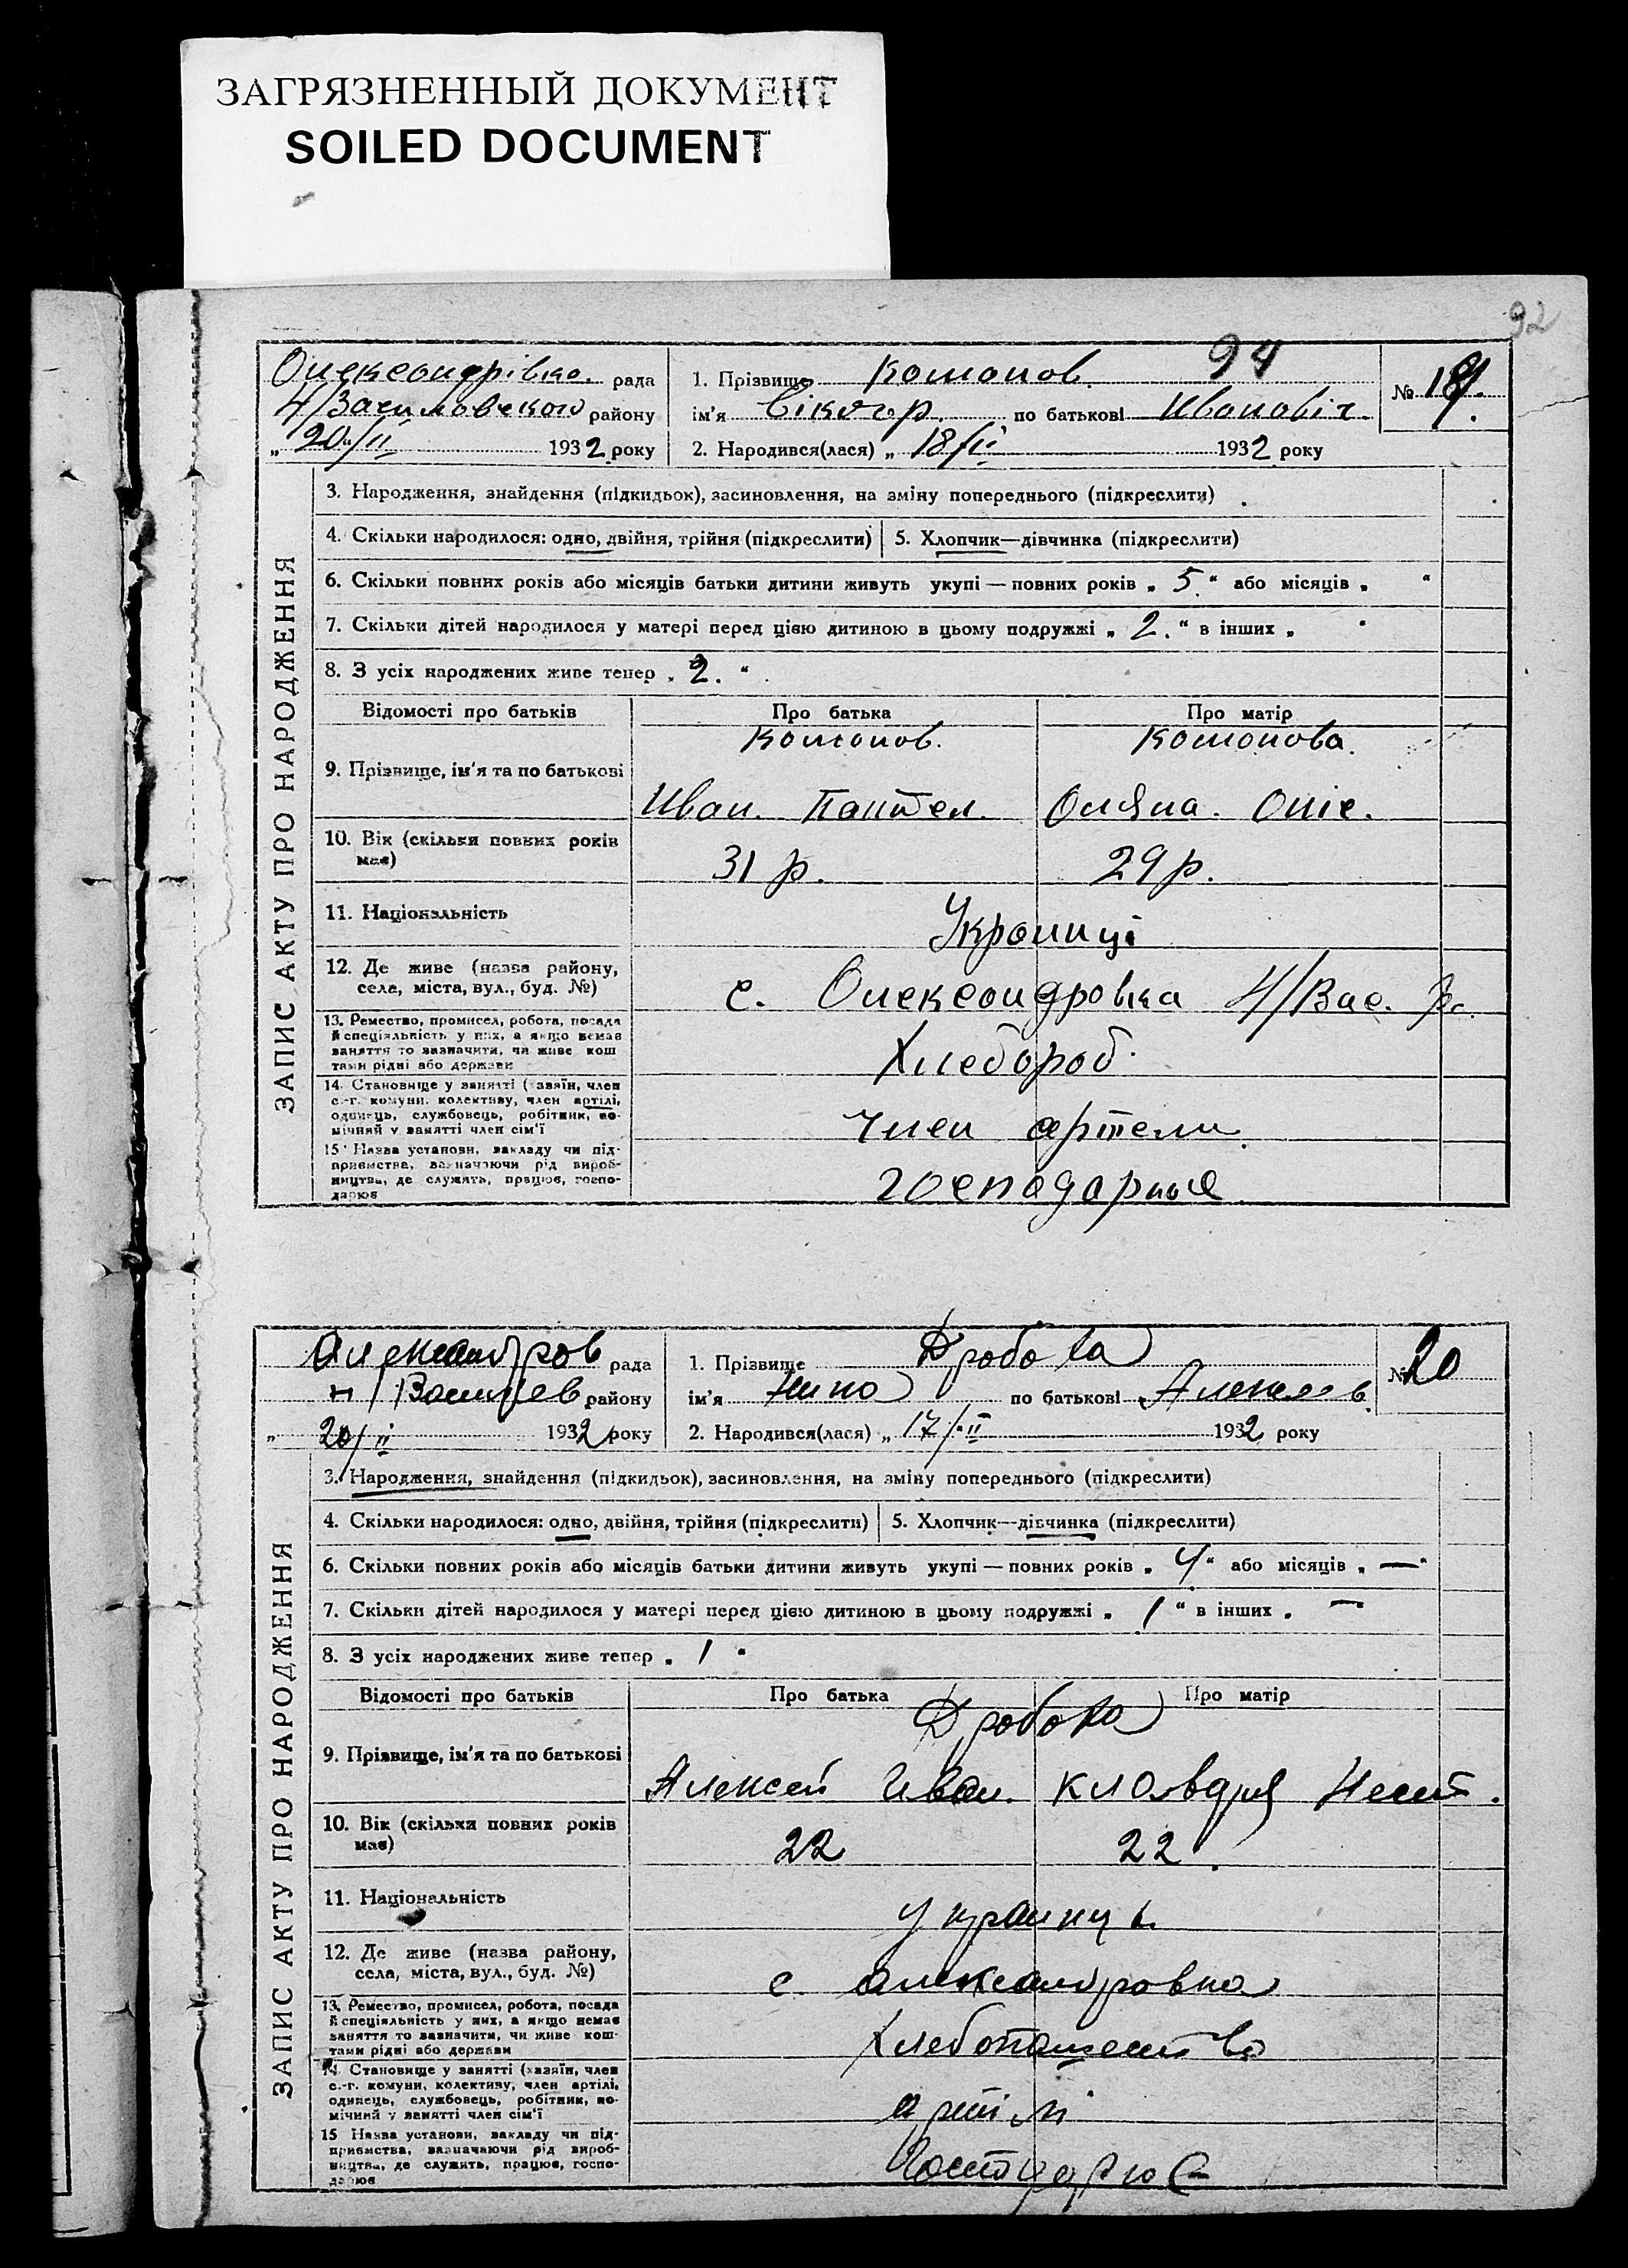 ЗАГРЯЗНЕННЫЙ ДОКУМЕНТ
SOILED DOCUMENT
92
94
Олександрівка. рада
1. Прізвище
№
Н/Василовского району
ім'я Віктор по батькові Иванович.
„ 20/II 1932 року
2. Народився(лася) „ 18/II 1932 року
ЗАПИС АКТУ ПРО НАРОДЖЕННЯ
3. Народження, знайдення (підкидьок), засиновлення, на зміну попереднього (підкреслити)
4. Скільки народилося: одно, двійня, трійня (підкреслити)
5. Хлопчик—дівчинка (підкреслити)
6. Скільки повних років або місяців батьки дитини живуть укупі — повних років „ 5. “ або місяців „ “
7. Скільки дітей народилося у матері перед цією дитиною в цьому подружжі „ 2. “ в інших „ “
8. З усіх народжених живе тепер „ 2. “
Відомості про батьків
Про батька
Про матір
9. Прізвище, ім'я та по батькові
Иван. Пантел.
10. Вік (скільки повних років має)
31 р.
29 р.
11. Національність
Украинці
12. Де живе (назва району,
села, міста, вул., буд. №)
с. Олександровка Н/Вас. р.
13. Ремество, промисел, робота, посада
й спеціяльність у них, а якщо немає
заняття то зазначити, чи живе кош
тами рідні або держави
Хлебороб
14. Становище у занятті (хазяїн, член
с.-г. комуни, колективу, член артілі,
одинець, службовець, робітник, по-
мічний у занятті член сім'ї
член артели.
15 Назва установи, закладу чи під-
приємства, зазначаючи рід вироб-
ництва, де служить, працює, госпо-
дарює
Александров рада
1. Прізвище Дробота
№ 20
району
ім'я Нина по батькові Алексеев.
„ 20/II 1932 року
2. Народився(лася) „ 17/II 1932 року
ЗАПИС АКТУ ПРО НАРОДЖЕННЯ
3. Народження, знайдення (підкидьок), засиновлення, на зміну попереднього (підкреслити)
4. Скільки народилося: одно, двійня, трійня (підкреслити)
5. Хлопчик—дівчинка (підкреслити)
6. Скільки повних років або місяців батьки дитини живуть укупі — повних років „ 4 “ або місяців „ — “
7. Скільки дітей народилося у матері перед цією дитиною в цьому подружжі „ 1 “ в інших „ —
8. З усіх народжених живе тепер „ 1 “
Відомості про батьків
Про батька
Про матір
Дробота
9. Прізвище, ім'я та по батькові
Алексей Иван.
Клавдия Нест.
10. Вік (скільки повних років має)
22
22.
11. Національність
украинці
12. Де живе (назва району,
села, міста, вул., буд. №)
с. Александровка
13. Ремество, промисел, робота, посада
й спеціяльність у них, а якщо немає
заняття то зазначити, чи живе кош-
тами рідні або держави
Хлебопашество
14. Становище у занятті (хазяїн, член
с.-г. комуни, колективу, член артілі,
одинець, службовець, робітник, по-
мічний у занятті член сім'ї
артілі
15 Назва установи, закладу чи під-
приємства, зазначаючи рід вироб-
ництва, де служить, працює, госпо-
дарює
Господарює